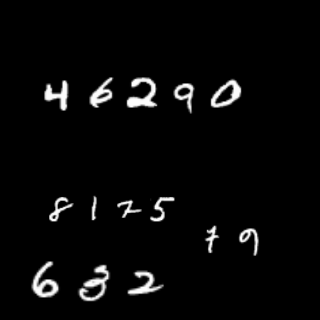 46290
8175
79
632